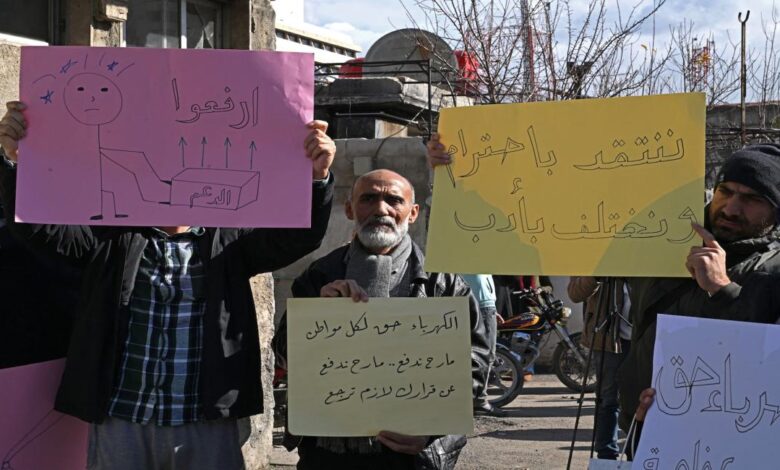 ارفعوا
الدعم
ننتقد باحترام
ونختلف بأدب
الكهرباء حق لكل مواطن
مارح ندفع.. مارح ندفع
عن قرارك لازم ترجع
هرباء حق